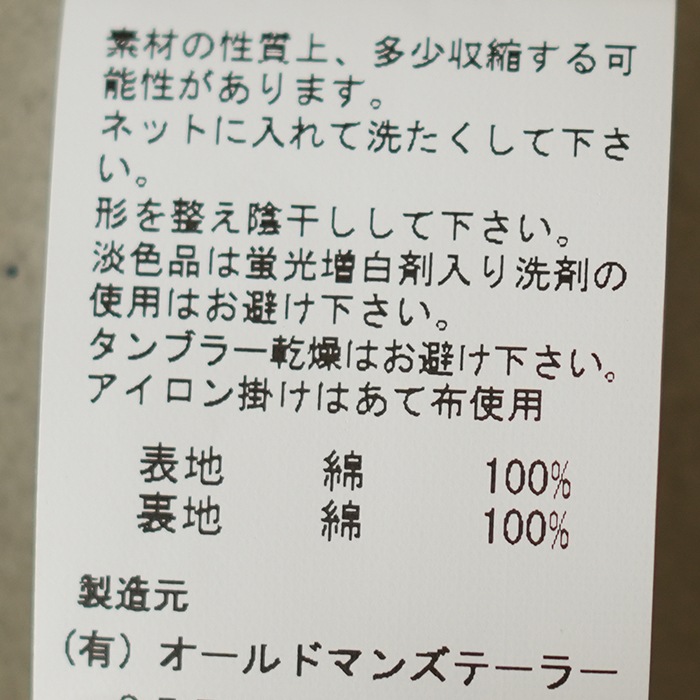 素材の性質上、多少収縮する可
能性があります。
ネットに入れて洗たくして下さ
い。
形を整え陰干しして下さい。
淡色品は蛍光増白剤入り洗剤の
使用はお避け下さい。
タンブラー乾燥はお避け下さい。
アイロン掛けはあて布使用
表地 綿 100%
裏地 綿 100%
製造元
(有) オールドマンズテーラー